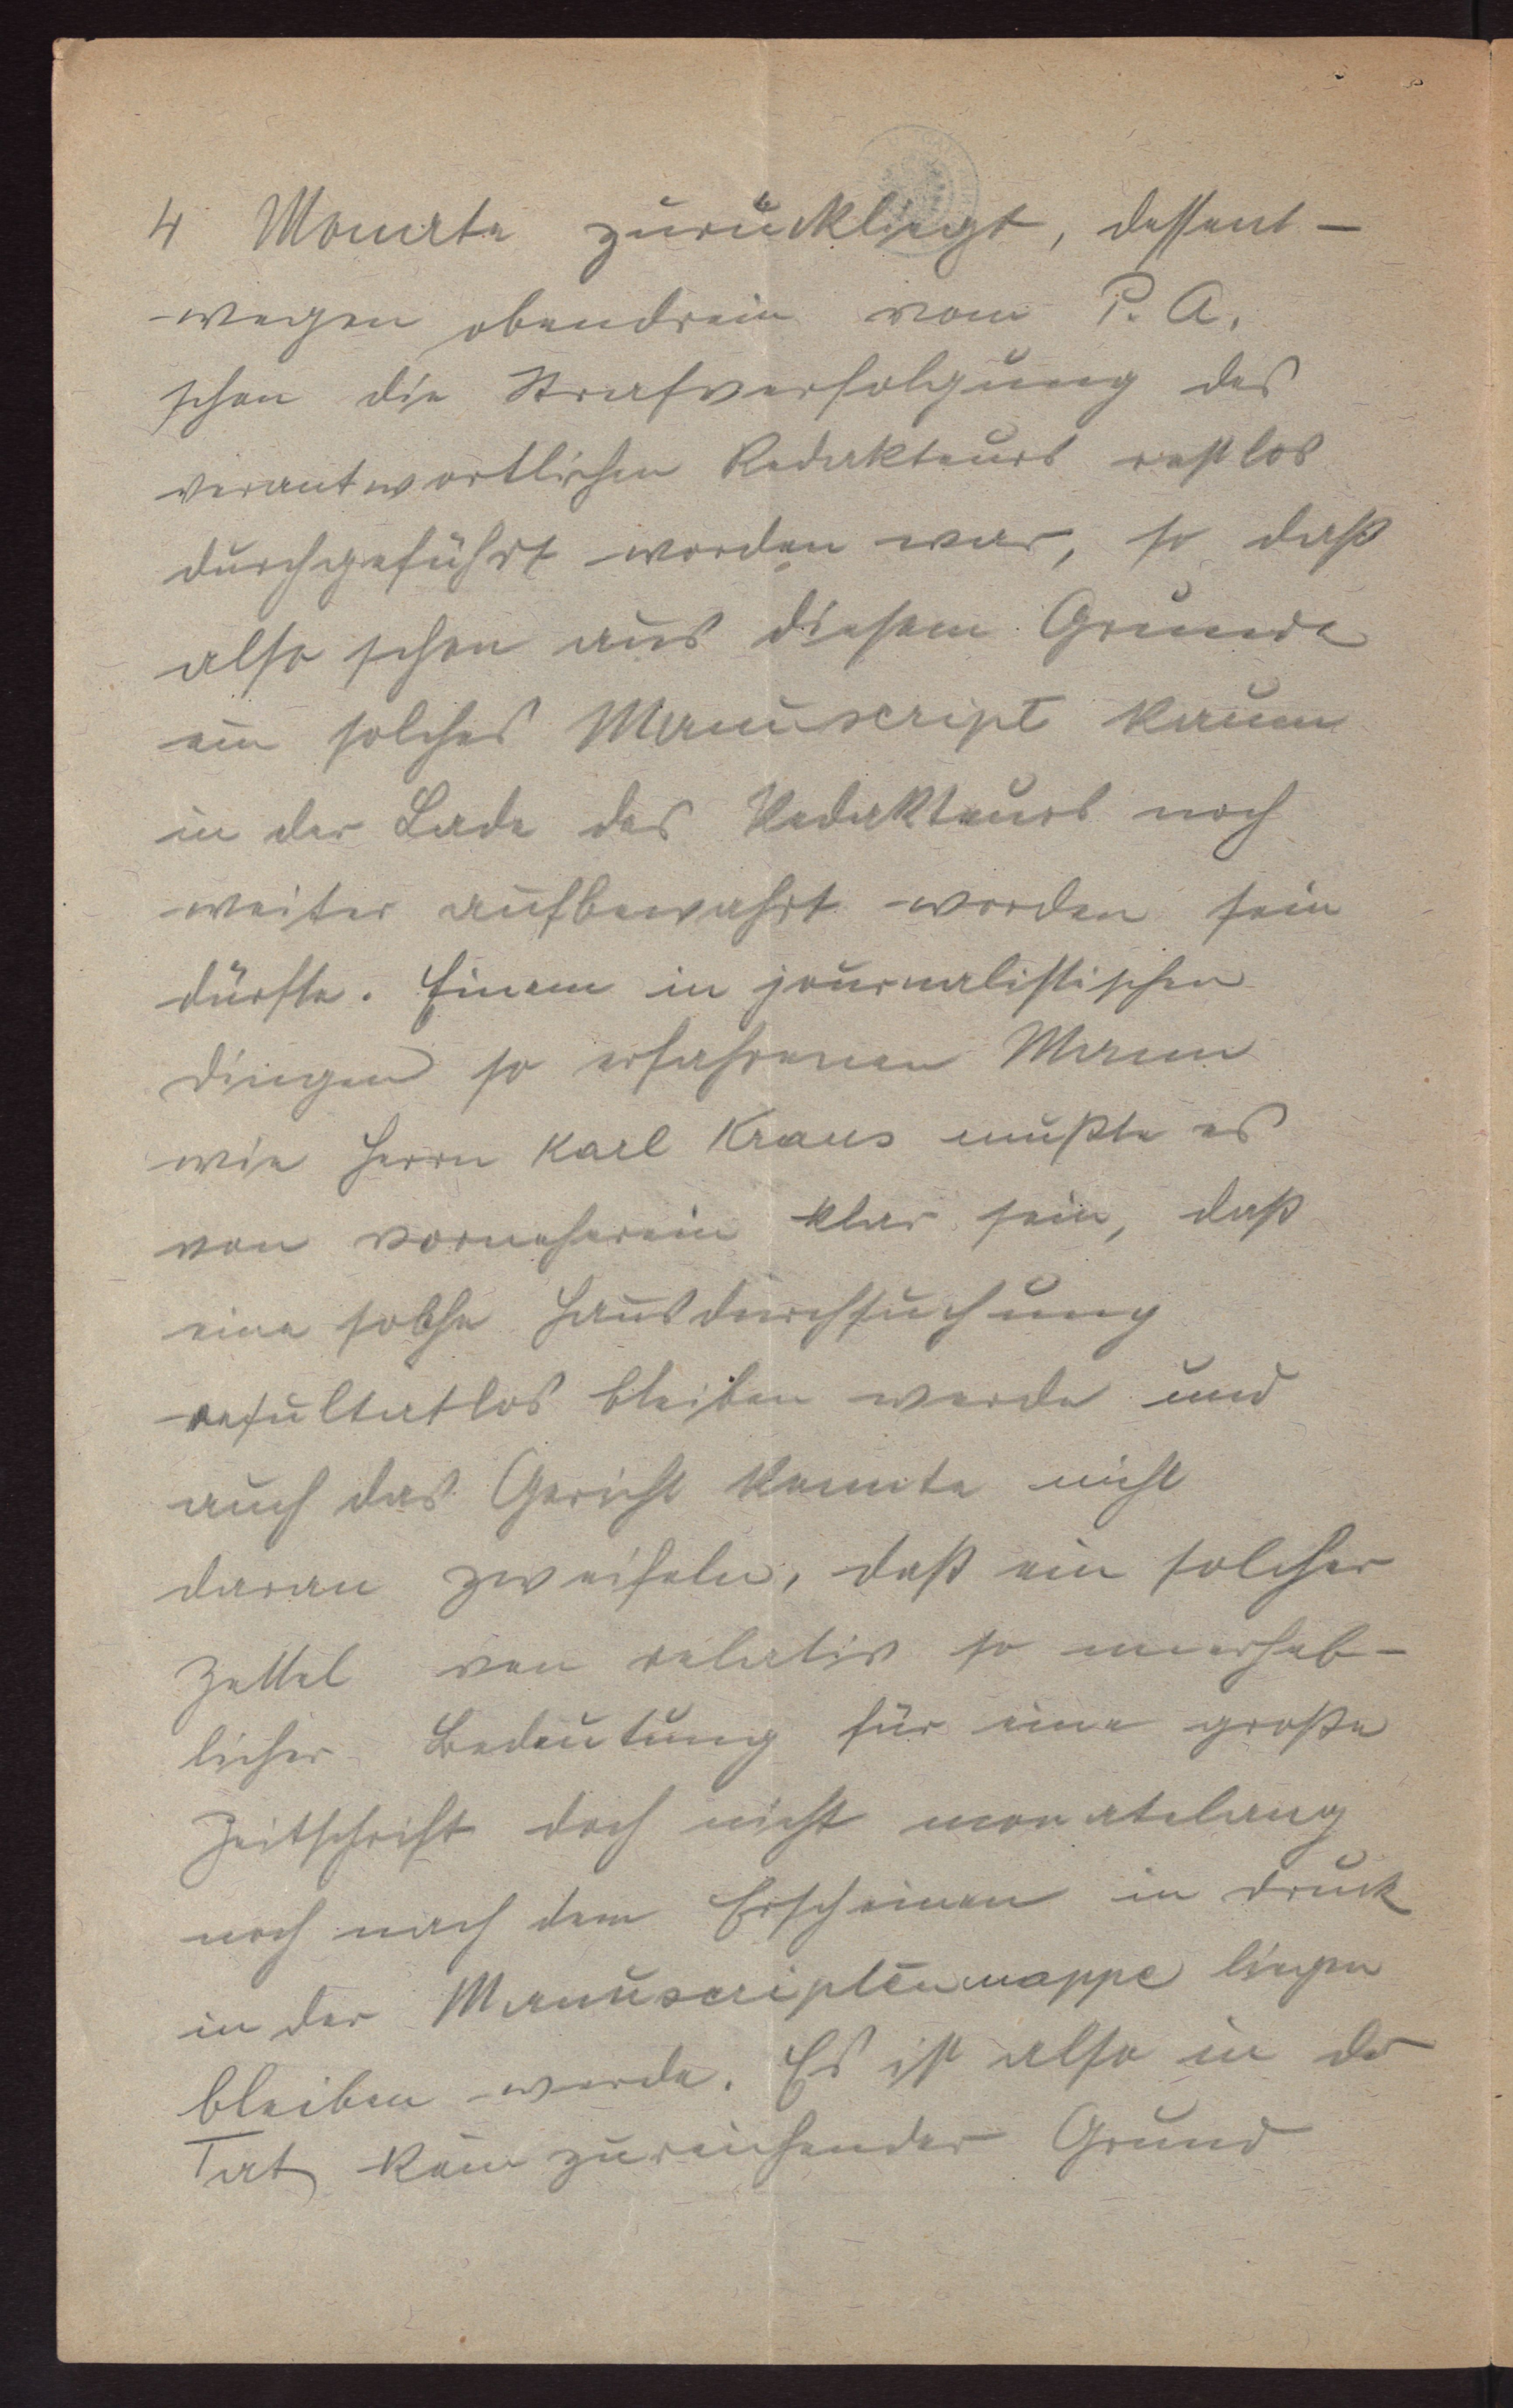 4 Monate zurückliegt, dessent-
wegen obendrein vom P. A.
schon die Strafverfolgung des
verantwortlichen Redakteurs restlos
durchgeführt worden war, so daß
also schon aus diesem Grunde
ein solches Manuscript kaum
in der Lade des Redakteurs noch
weiter aufbewahrt worden sein
dürfte. Einem in journalistischen
Dingen so erfahrenen Mann
wie Herrn Karl Kraus mußte es
von vorneherein klar sein, daß
eine solche Hausdurchsuchung
resultatlos bleiben werde und
auch das Gericht konnte nicht
daran zweifeln, daß ein solcher
Zettel von relativ so unerheb-
licher Bedeutung für eine große
Zeitschrift doch nicht monatelang
noch nach dem Erscheinen in Druck
in der Manuscriptenmappe liegen
bleiben werde. Es ist also in der
Tat kein zureichender Grund